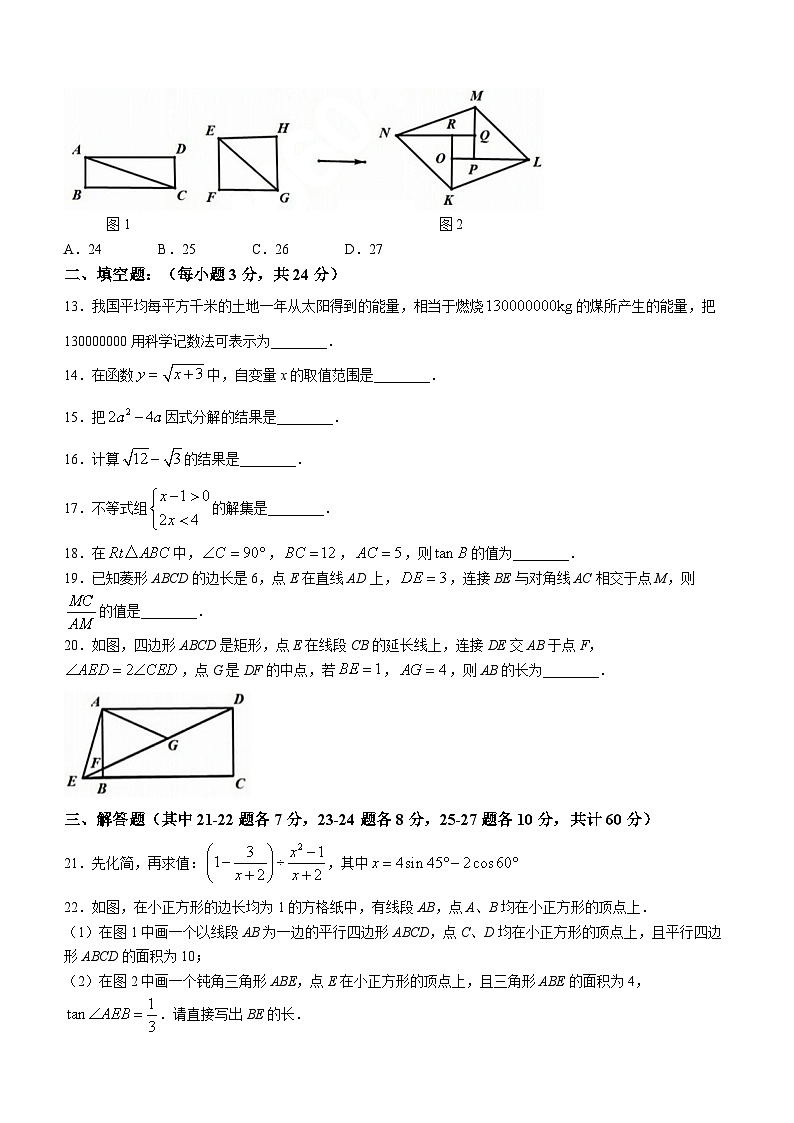 M
E H N R Q
A D O P L
B C F G K
图1 图2
A.24 B.25 C.26 D.27
二、填空题:(每小题3分,共24分)
13.我国平均每平方千米的土地一年从太阳得到的能量,相当于燃烧130000000kg的煤所产生的能量,把
130000000用科学记数法可表示为________.
14.在函数 y = √(x+3) 中,自变量x的取值范围是________.
15.把 2a² − 4a 因式分解的结果是________.
16.计算 √12 − √3 的结果是________.
17.不等式组 { x−1>0 2x<4 的解集是________.
18.在 Rt△ABC 中,∠C = 90°,BC = 12,AC = 5,则 tan B 的值为________.
19.已知菱形ABCD的边长是6,点E在直线AD上,DE = 3,连接BE与对角线AC相交于点M,则
MC/AM 的值是________.
20.如图,四边形ABCD是矩形,点E在线段CB的延长线上,连接DE交AB于点F,
∠AED = 2∠CED,点G是DF的中点,若 BE = 1,AG = 4,则AB的长为________.
A D
G
F
E B C
三、解答题(其中21-22题各7分,23-24题各8分,25-27题各10分,共计60分)
21.先化简,再求值:(1 − 3/(x+2)) ÷ (x²−1)/(x+2),其中 x = 4sin 45° − 2cos 60°
22.如图,在小正方形的边长均为1的方格纸中,有线段AB,点A、B均在小正方形的顶点上.
(1)在图1中画一个以线段AB为一边的平行四边形ABCD,点C、D均在小正方形的顶点上,且平行四边
形ABCD的面积为10;
(2)在图2中画一个钝角三角形ABE,点E在小正方形的顶点上,且三角形ABE的面积为4,
tan∠AEB = 1/3.请直接写出BE的长.